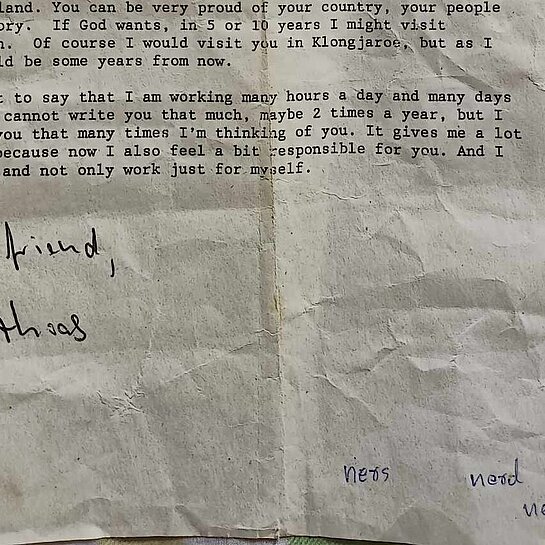 land. You can be very proud of your country, your people
ory. If God wants, in 5 or 10 years I might visit
n. Of course I would visit you in Klongjaroe, but as I
ld be some years from now.
t to say that I am working many hours a day and many days
cannot write you that much, maybe 2 times a year, but I
you that many times I'm thinking of you. It gives me a lot
because now I also feel a bit responsible for you. And I
and not only work just for myself.
friend,
ners
nerd
ne